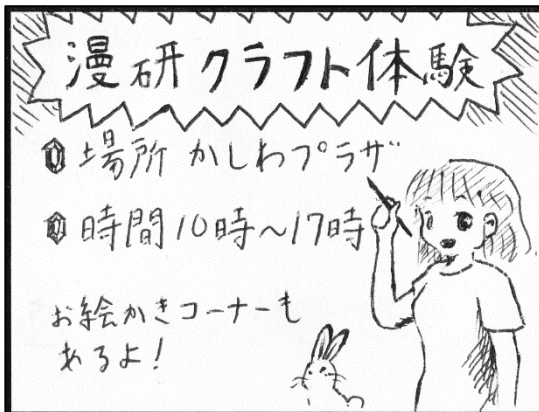 漫研クラフト体験
場所 かしわプラザ
時間 10時～17時
お絵かきコーナーも
あるよ!